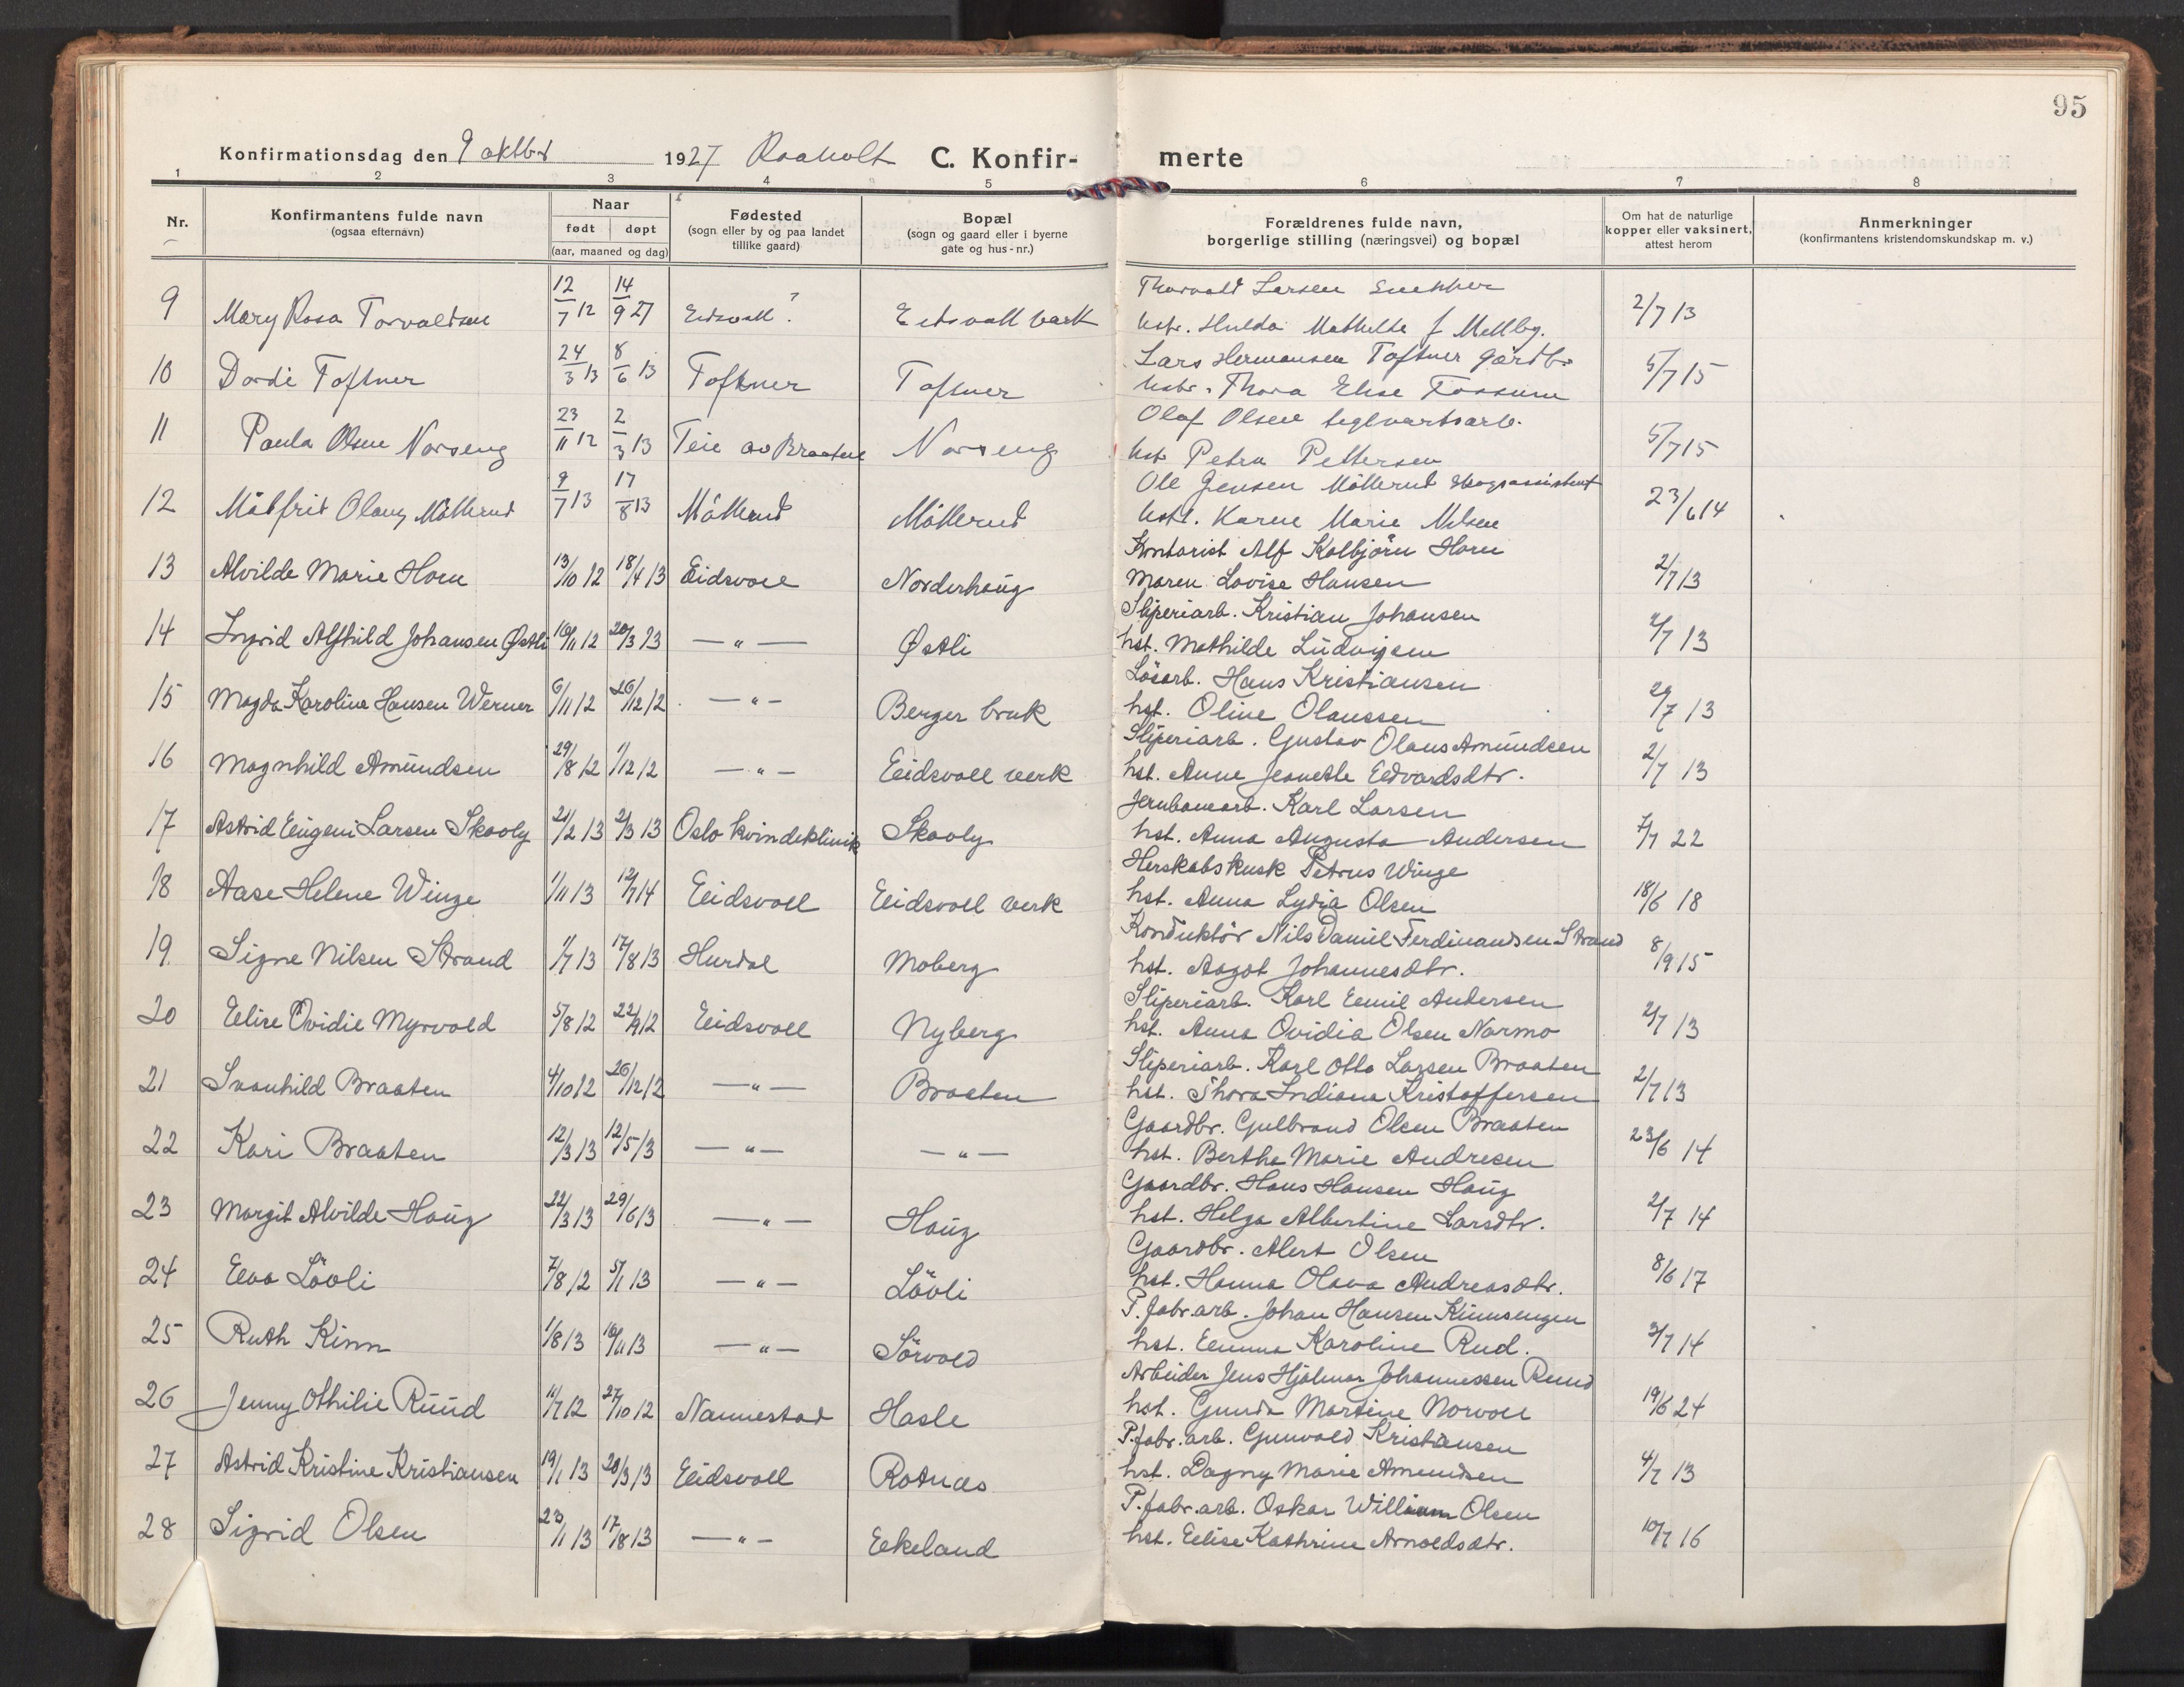 95
Konfirmationsdag den 9 oktbr 1927 Raaholt C. Konfir- merte
1 2 3 4 5 6 7 8
Nr.
Konfirmantens fulde navn
(ogsaa efternavn)
Naar
født døpt
(aar, maaned og dag)
Fødested
(sogn eller by og paa landet
tillike gaard)
Bopæl
(sogn og gaard eller i byerne
gate og hus-nr.)
Forældrenes fulde navn,
borgerlige stilling (næringsvei) og bopæl
Om hat de naturlige
kopper eller vaksinert,
attest herom
Anmerkninger
(konfirmantens kristendomskundskap m. v.)
Thorvald Larsen Snekker
9 Mary Rosa Torvaldsen 12/7 12 14/9 27 Eidsvoll ? Eidsvoll værk hstr. Hulda Mathilde f Mellby. 2/7 13
Lars Hermansen Toftner gårdb.
10 Dordi Toftner 24/3 13 8/6 13 Toftner Toftner hstr. Thora Elise Fossum 5/7 15
Olaf Olsen teglverksarb.
11 Paula Olsen Norseng 23/11 12 2/3 13 Teie av Braatene Norseng hstr Petra Pettersen 5/7 15
Ole Jensen Möllerud
12 Målfrid Olaug Möllerud 9/7 13 17/8 13 Möllerud Möllerud hstr. Karen Marie Nilsen 23/6 14
Kontorist Alf Kolbjörn Horn
13 Alvilde Marie Horn 13/10 12 18/4 13 Eidsvoll Norderhaug Maren Lovise Hansen 2/7 13
Sliperiarb. Kristian Johansen
14 Ingrid Alfhild Johansen Østli 10/11 12 20/3 13 — " — Østli hst. Mathilde Ludvigsen 2/7 13
Lösarb. Hans Kristiansen
15 Magda Karoline Hansen Werner 6/11 12 26/12 12 — " — Berger bruk hst. Oline Olaussen 29/7 13
Sliperiarb. Gustav Olaus Amundsen
16 Magnhild Amundsen 29/8 12 1/12 12 — " — Eidsvoll verk hst. Anne Jeanette Edvardsdtr. 2/7 13
Jernbanearb. Karl Larsen
17 Astrid Eugeni Larsen Skovly 21/2 13 2/3 13 Oslo kvindeklinik Skovly hst. Anna Augusta Andersen 7/7 22
Herskabskusk Petrus Winge
18 Aase Helene Winge 1/11 13 12/7 14 Eidsvoll Eidsvoll verk hst. Anna Lydia Olsen 18/6 18
Konduktör Nils Daniel Ferdinandsen Strand
19. Signe Nilsen Strand 1/7 13 17/8 13 Hurdal Moberg hst. Aagot Johannesdtr. 8/9 15
Sliperiarb. Karl Emil Andersen
20 Elise Ovidie Myrvold 5/8 12 22/9 12 Eidsvoll Nyberg hst. Anna Ovidia Olsen Narmo 2/7 13
Sliperiarb. Karl Otto Larsen Braaten
21 Svanhild Braaten 4/10 12 26/12 12 — " — Braaten hst. Thora Indiana Kristoffersen 2/7 13
Gaardbr. Gulbrand Olsen Braaten
22 Kari Braaten 12/3 13 12/5 13 — " — — " — hst. Berthe Marie Andresen 23/6 14
Gaardbr. Hans Hansen Haug
23 Margit Alvilde Haug 22/3 13 29/6 13 — " — Haug hst. Helga Albertine Larsdtr. 2/7 14
Gaardbr. Alert Olsen
24 Eva Lövli 7/8 12 5/1 13 — " — Lövli hst. Hanna Olava Andreasdtr. 8/6 17
P. fabr. arb. Johan Hansen Kinnsengen
25 Ruth Kinn 1/8 13 16/11 13 — " — Sörvold hst. Emma Karoline Rud. 3/7 14
Arbeider Jens Hjalmar Johannessen Ruud
26 Jenny Othilie Ruud 11/7 12 27/10 12 Nannestad Hasle hst. Gunda Martine Norvoll 19/6 24
P. fabr. arb. Gunvald Kristiansen
27 Astrid Kristine Kristiansen 19/1 13 20/3 13 Eidsvoll Rotnæs hst. Dagny Marie Amundsen 4/7 13
P. fabr. arb. Oskar William Olsen
28 Sigrid Olsen 23/1 13 17/8 13 — " — Ekeland hst. Elise Kathrine Arnoldsdtr. 10/7 16